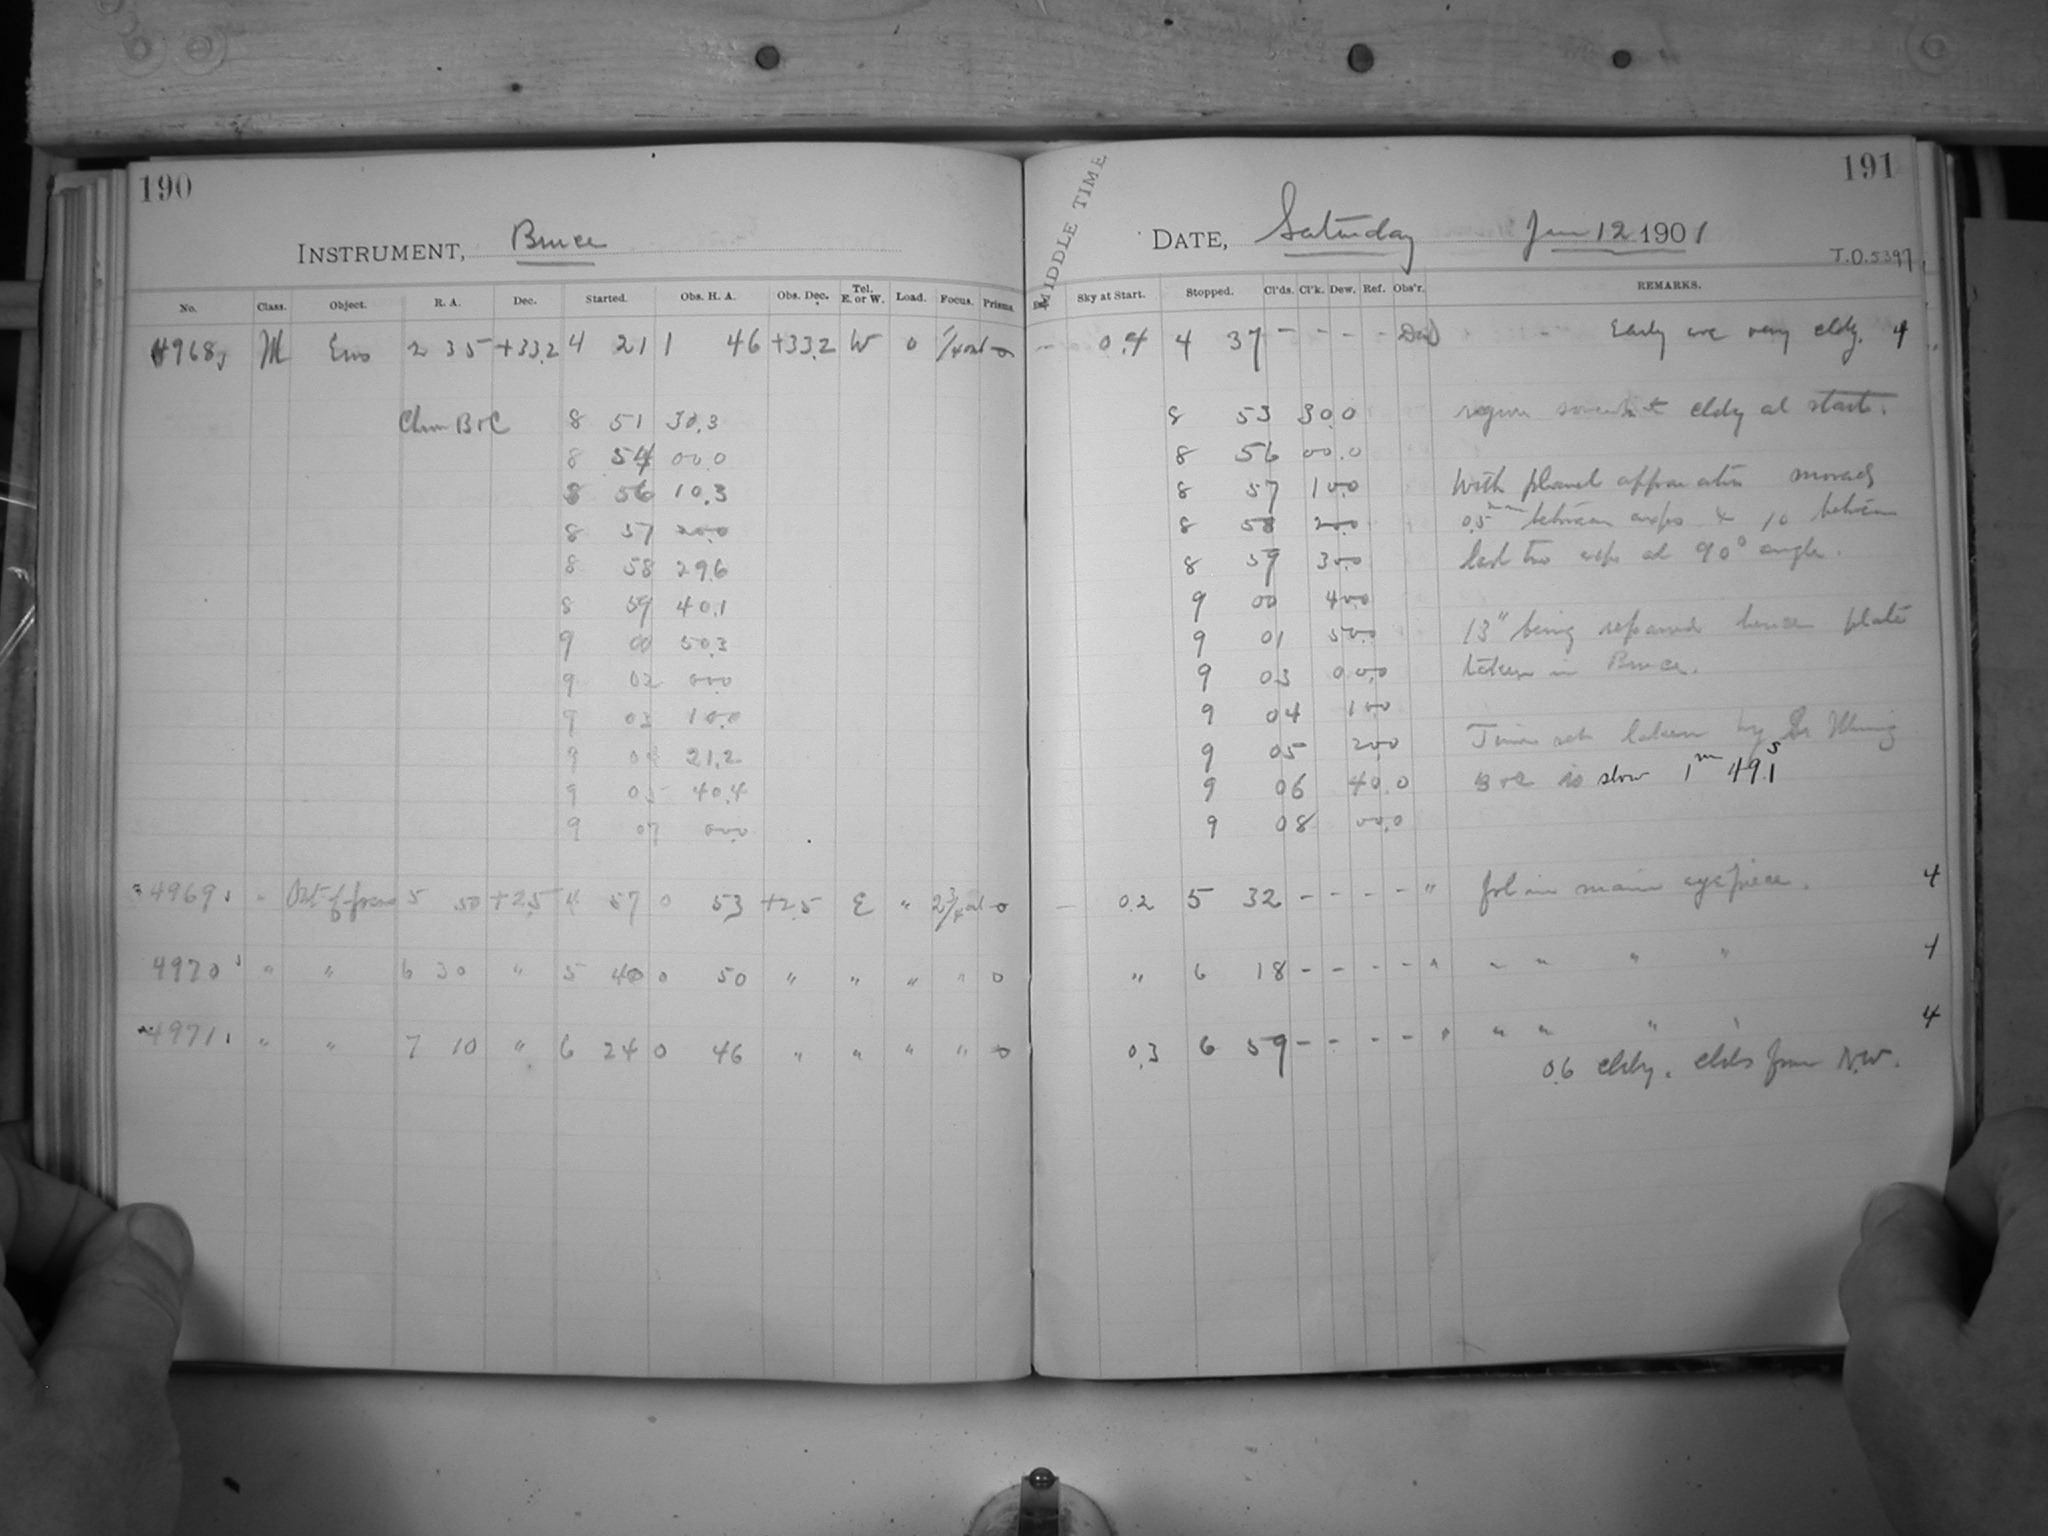 190
INSTRUMENT, Bruce
No. Class. Object. R. A. Dec. Started. Obs. H. A. Obs. Dec. Tel. E. or W. Load. Focus. Prisms.
4968 M Eros 2 35 +33.2 4 21 1 46 +33.2 W 0 1/4 out 0
Chro B&C 8 51 30.3
8 54 00.0
8 56 10.3
8 57 20.0
8 58 29.6
8 59 40.1
9 00 50.3
9 02 00.0
9 03 10.0
9 04 21.2
9 05 40.4
9 07 00.0
4969 " Out-of-focus 5 50 +2.5 4 57 0 53 +2.5 E " 2 3/4 out 0
4970 " " 6 30 " 5 40 0 50 " " " " 0
4971 " " 7 10 " 6 24 0 46 " " " " 0
191
MIDDLE TIME
DATE, Saturday Jan 12 1901
T.O. 5397
Sky at Start. Stopped. Cl'ds. Cl'k. Dew. Ref. Obs'r. REMARKS.
- 0.4 4 37 - - - - Early eve very cldy. 4
8 53 30.0 region somewhat cldy at start.
8 56 00.0
8 57 10.0 With planet apparatus moved
8 58 20.0 0.5mm between exps & 10 between
8 59 30.0 last two exps at 90° angle.
9 00 40.0
9 01 50.0 13" being repaired hence plate
9 03 00.0 taken in Bruce.
9 04 10.0
9 05 20.0 Times taken by
9 06 40.0 B&C is slow 1m 49.1s
9 08 00.0
- 0.2 5 32 - - - - " fol in main eyepiece. 4
" 6 18 - - - - " " " " " 4
0.3 6 59 - - - - " " " " " 4
0.6 cldy. clds from N.W.